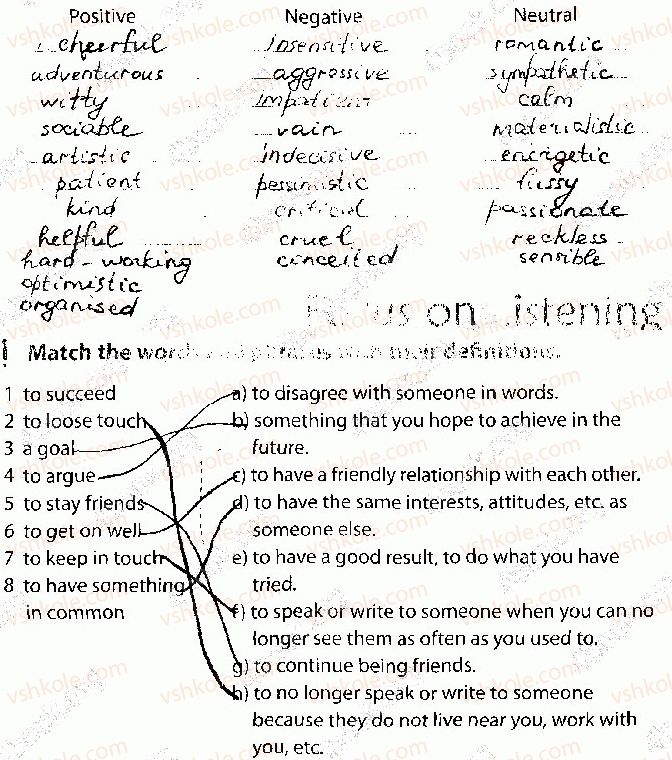 Positive Negative Neutral
cheerful insensitive romantic
adventurous aggressive sympathetic
witty impatient calm
sociable vain materialistic
artistic indecisive energetic
patient pessimistic fussy
kind critical passionate
helpful cruel reckless
hard-working conceited sensible
optimistic
organised
Focus on Listening
Match the words and phrases with their definitions.
1 to succeed
2 to loose touch
3 a goal
4 to argue
5 to stay friends
6 to get on well
7 to keep in touch
8 to have something
in common
a) to disagree with someone in words.
b) something that you hope to achieve in the
future.
c) to have a friendly relationship with each other.
d) to have the same interests, attitudes, etc. as
someone else.
e) to have a good result, to do what you have
tried.
f) to speak or write to someone when you can no
longer see them as often as you used to.
g) to continue being friends.
h) to no longer speak or write to someone
because they do not live near you, work with
you, etc.
vshkole.com